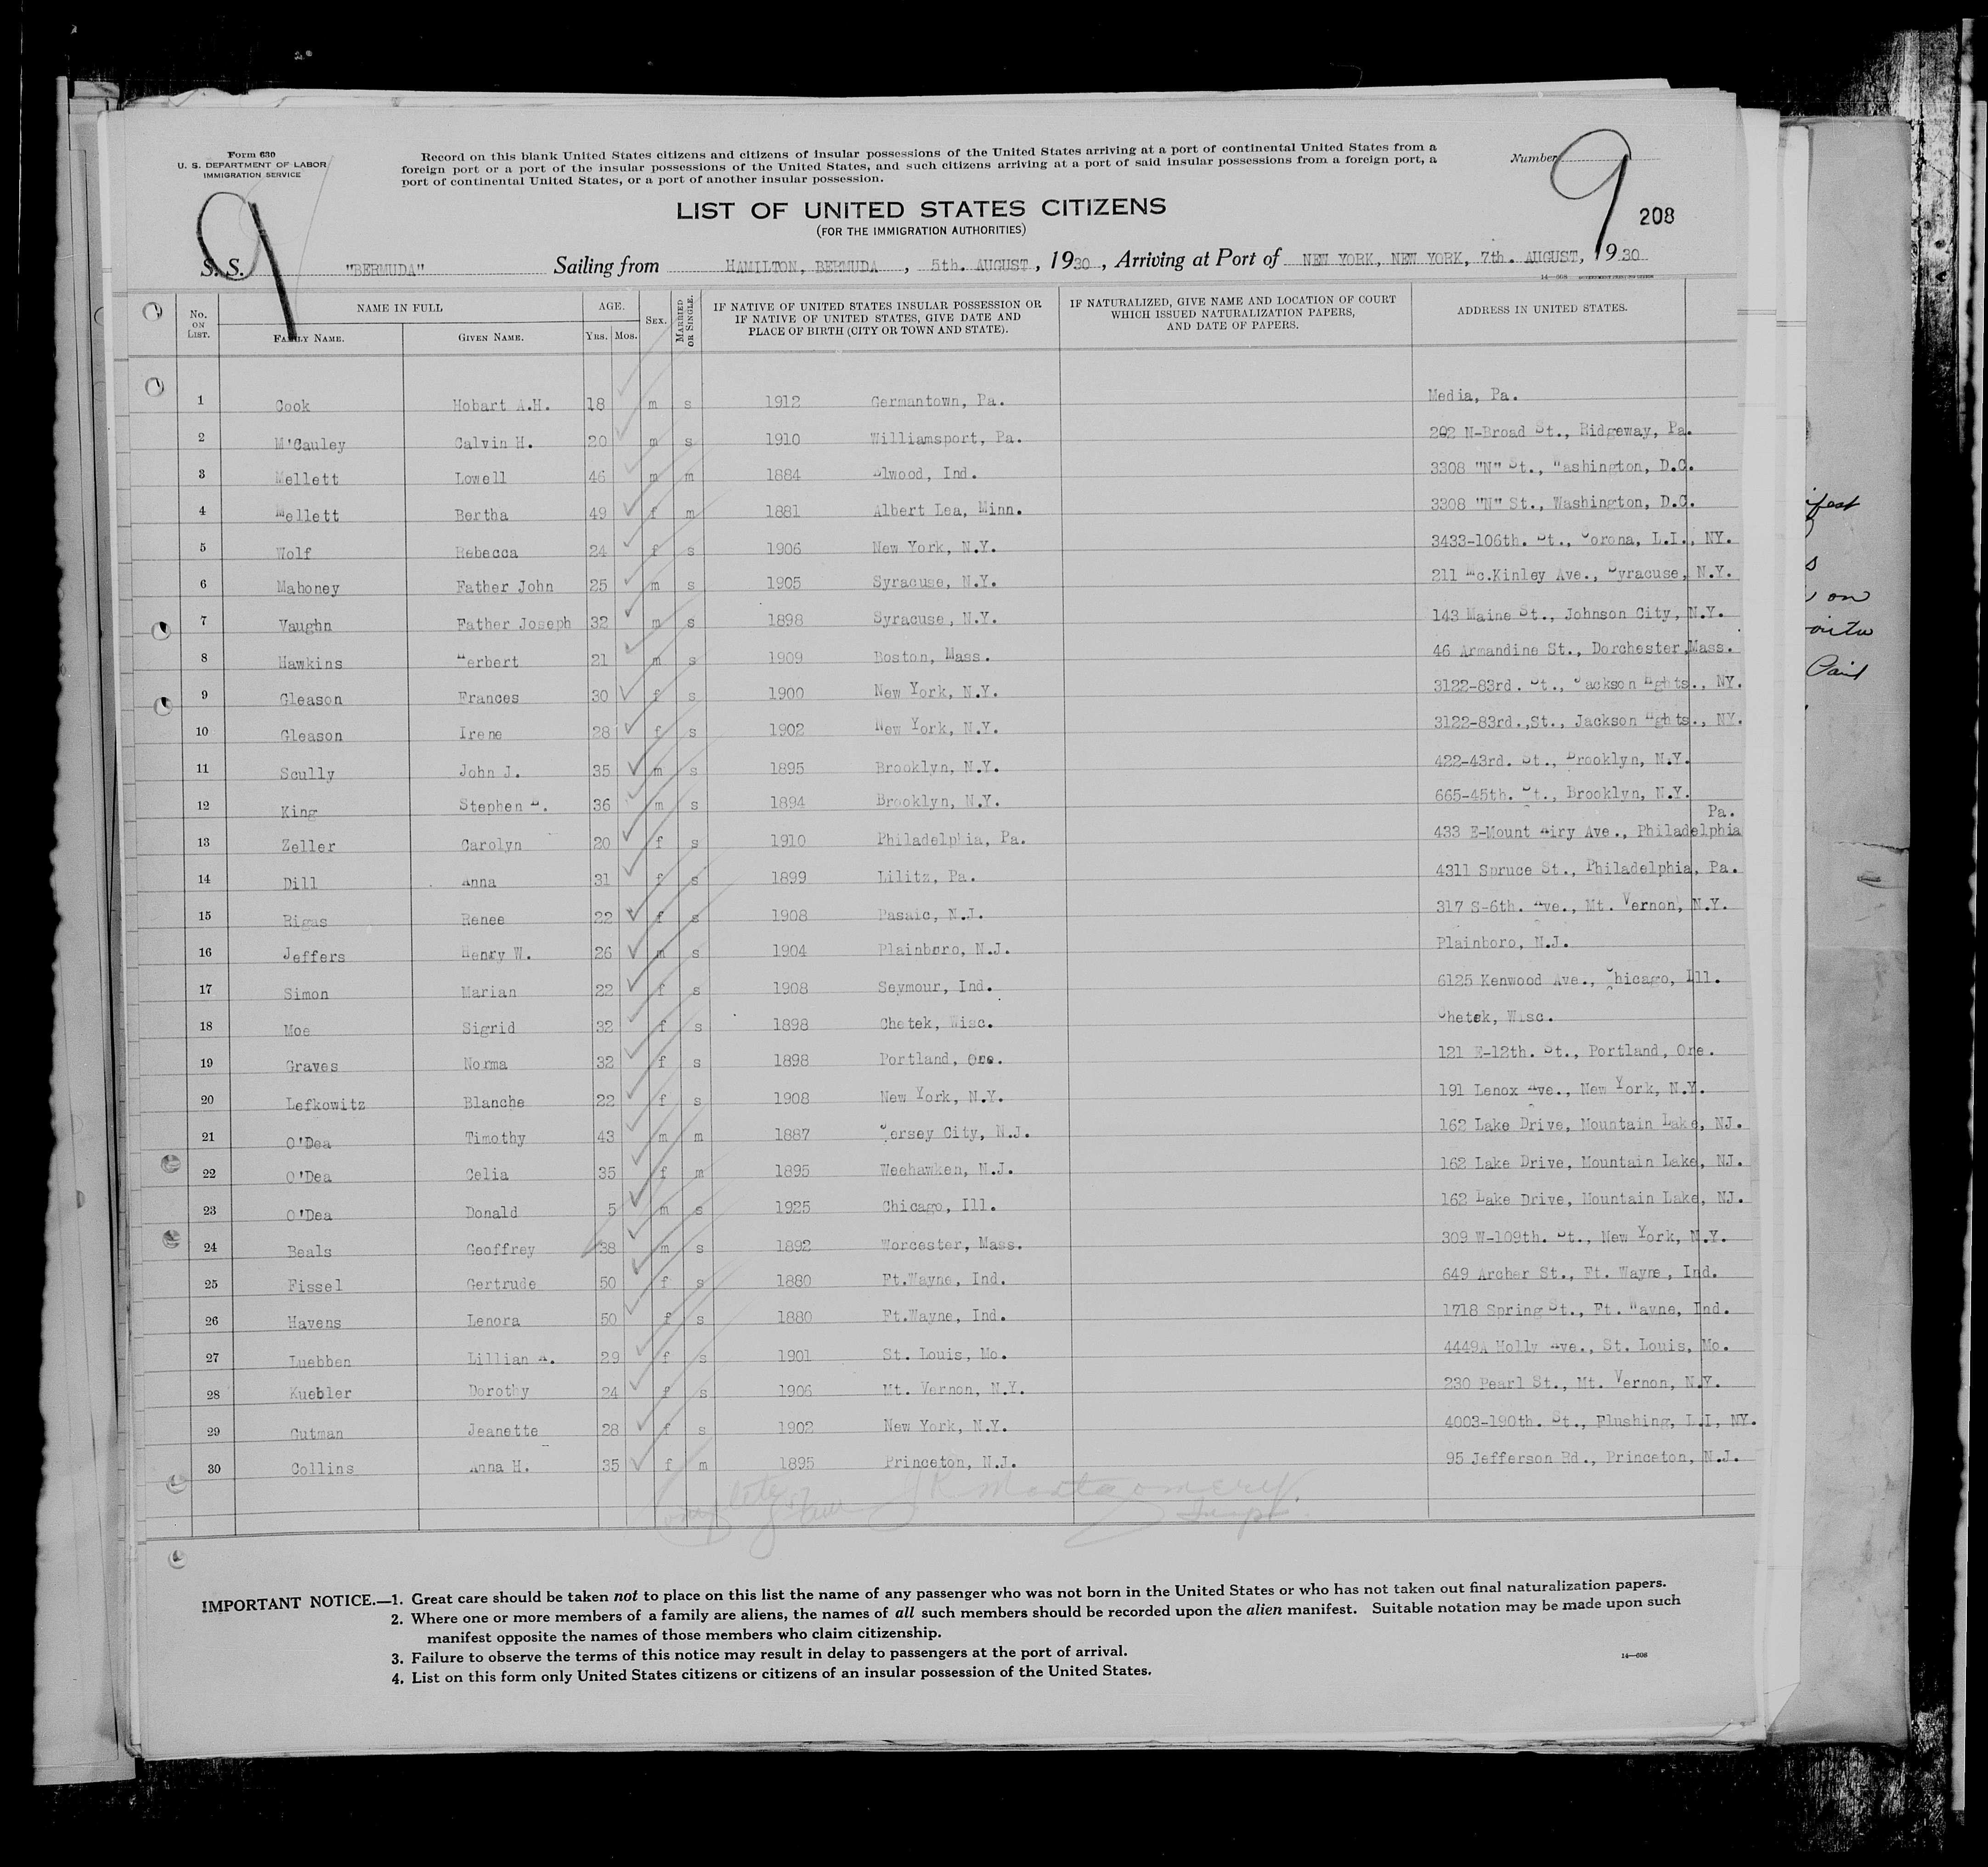 Form 630
U. S. DEPARTMENT OF LABOR
IMMIGRATION SERVICE
Record on this blank United States citizens and citizens of insular possessions of the United States arriving at a port of continental United States from a
foreign port or a port of the insular possessions of the United States, and such citizens arriving at a port of said insular possessions from a foreign port, a
port of continental United States, or a port of another insular possession.
Number
9
9
208
LIST OF UNITED STATES CITIZENS
(FOR THE IMMIGRATION AUTHORITIES)
S. S. "BERMUDA" Sailing from HAMILTON, BERMUDA, 5th. AUGUST, 1930, Arriving at Port of NEW YORK, NEW YORK, 7th. AUGUST, 1930
No. ON LIST. NAME IN FULL FAMILY NAME. GIVEN NAME. AGE. YRS. MOS. SEX. MARRIED OR SINGLE. IF NATIVE OF UNITED STATES INSULAR POSSESSION OR IF NATIVE OF UNITED STATES, GIVE DATE AND PLACE OF BIRTH (CITY OR TOWN AND STATE). IF NATURALIZED, GIVE NAME AND LOCATION OF COURT WHICH ISSUED NATURALIZATION PAPERS, AND DATE OF PAPERS. ADDRESS IN UNITED STATES.
1 Cook Hobart A.H. 18 m s 1912 Germantown, Pa. Media, Pa.
2 M'Cauley Calvin H. 20 m s 1910 Williamsport, Pa. 202 N-Broad St., Ridgeway, Pa.
3 Mellett Lowell 46 m m 1884 Elwood, Ind. 3308 "N" St., Washington, D.C.
4 Mellett Bertha 49 f m 1881 Albert Lea, Minn. 3308 "N" St., Washington, D.C.
5 Wolf Rebecca 24 f s 1906 New York, N.Y. 3433-106th. St., Corona, L.I., NY.
6 Mahoney Father John 25 m s 1905 Syracuse, N.Y. 211 Mc.Kinley Ave., Syracuse, N.Y.
7 Vaughn Father Joseph 32 m s 1898 Syracuse, N.Y. 143 Maine St., Johnson City, N.Y.
8 Hawkins Herbert 21 m s 1909 Boston, Mass. 46 Armandine St., Dorchester, Mass.
9 Gleason Frances 30 f s 1900 New York, N.Y. 3122-83rd. St., Jackson Hghts., NY.
10 Gleason Irene 28 f s 1902 New York, N.Y. 3122-83rd.,St., Jackson Hghts., NY.
11 Scully John J. 35 m s 1895 Brooklyn, N.Y. 422-43rd. St., Brooklyn, N.Y.
12 King Stephen 36 m s 1894 Brooklyn, N.Y. 665-45th. St., Brooklyn, N.Y.
13 Zeller Carolyn 20 f s 1910 Philadelphia, Pa. 433 E-Mount Airy Ave., Philadelphia Pa.
14 Dill Anna 31 f s 1899 Lilitz, Pa. 4311 Spruce St., Philadelphia, Pa.
15 Rigas Renee 22 f s 1908 Pasaic, N.J. 317 S-6th. Ave., Mt. Vernon, N.Y.
16 Jeffers Henry W. 26 m s 1904 Plainboro, N.J. Plainboro, N.J.
17 Simon Marian 22 f s 1908 Seymour, Ind. 6125 Kenwood Ave., Chicago, Ill.
18 Moe Sigrid 32 f s 1898 Chetek, Wisc. Chetek, Wisc.
19 Graves Norma 32 f s 1898 Portland, Ore. 121 E-12th. St., Portland, Ore.
20 Lefkowitz Blanche 22 f s 1908 New York, N.Y. 191 Lenox Ave., New York, N.Y.
21 O'Dea Timothy 43 m m 1887 Jersey City, N.J. 162 Lake Drive, Mountain Lake, NJ.
22 O'Dea Celia 35 f m 1895 Weehawken, N.J. 162 Lake Drive, Mountain Lake, NJ.
23 O'Dea Donald 5 m s 1925 Chicago, Ill. 162 Lake Drive, Mountain Lake, NJ.
24 Beals Geoffrey 38 m s 1892 Worcester, Mass. 309 W-109th. St., New York, N.Y.
25 Fissel Gertrude 50 f s 1880 Ft.Wayne, Ind. 649 Archer St., Ft. Wayne, Ind.
26 Havens Lenora 50 f s 1880 Ft.Wayne, Ind. 1718 Spring St., Ft. Wayne, Ind.
27 Luebben Lillian A. 29 f s 1901 St. Louis, Mo. 4449A Holly Ave., St. Louis, Mo.
28 Kuebler Dorothy 24 f s 1906 Mt. Vernon, N.Y. 230 Pearl St., Mt. Vernon, N.Y.
29 Gutman Jeanette 28 f s 1902 New York, N.Y. 4003-190th. St., Flushing, L.I, NY.
30 Collins Anna H. 35 f m 1895 Princeton, N.J. 95 Jefferson Rd., Princeton, N.J.
Montgomery
Insp.
IMPORTANT NOTICE.—1. Great care should be taken not to place on this list the name of any passenger who was not born in the United States or who has not taken out final naturalization papers.
2. Where one or more members of a family are aliens, the names of all such members should be recorded upon the alien manifest. Suitable notation may be made upon such
manifest opposite the names of those members who claim citizenship.
3. Failure to observe the terms of this notice may result in delay to passengers at the port of arrival.
4. List on this form only United States citizens or citizens of an insular possession of the United States.
14—606
on
Paid